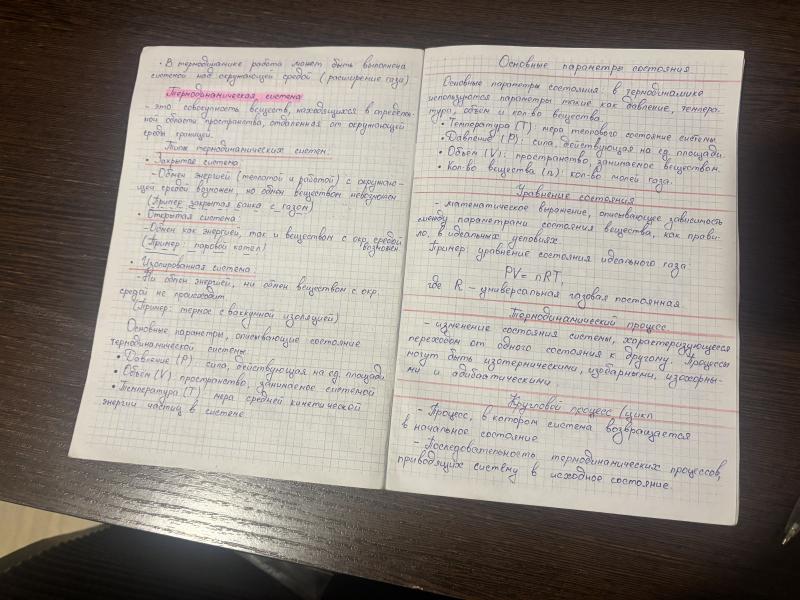 • В термодинамике работа может быть выполнена
системой над окружающей средой (расширение газа)
Термодинамическая система
- это совокупность веществ, находящихся в определен-
ной области пространства, отделенная от окружающей
среды границей.
Типы термодинамических систем:
• Закрытая система:
- Обмен энергией (теплотой и работой) с окружаю-
щей средой возможен, но обмен веществом невозможен
(Пример: закрытая банка с газом)
• Открытая система:
- Обмен как энергией, так и веществом с окр. средой
возможен
(Пример: паровой котел)
• Изолированная система:
- Ни обмен энергией, ни обмен веществом с окр.
средой не происходит
(Пример: термос с вакуумной изоляцией)
Основные параметры, описывающие состояние
термодинамической системы
• Давление (P) сила, действующая на ед. площади
• Объем (V) пространство, занимаемое системой
• Температура (T) мера средней кинетической
энергии частиц в системе
Основные параметры состояния
Основные параметры состояния: в термодинамике
используются параметры такие как давление, темпера-
тура, объем и кол-во вещества.
• Температура (T): мера теплового состояние системы
• Давление (P): сила, действующая на ед. площади.
• Объем (V): пространство, занимаемое веществом.
• Кол-во вещества (n): кол-во молей газа.
Уравнение состояния
- математическое выражение, описывающее зависимость
между параметрами состояния вещества, как прави-
ло, в идеальных условиях.
Пример: уравнение состояния идеального газа
PV = nRT,
где R - универсальная газовая постоянная.
Термодинамический процесс
- изменение состояния системы, характеризующееся
переходом от одного состояния к другому. Процессы
могут быть изотермическими, изобарными, изохорны-
ми и адиабатическими.
Круговой процесс (цикл
- Процесс, в котором система возвращается
в начальное состояние
- Последовательность термодинамических процессов,
приводящих систему в исходное состояние.